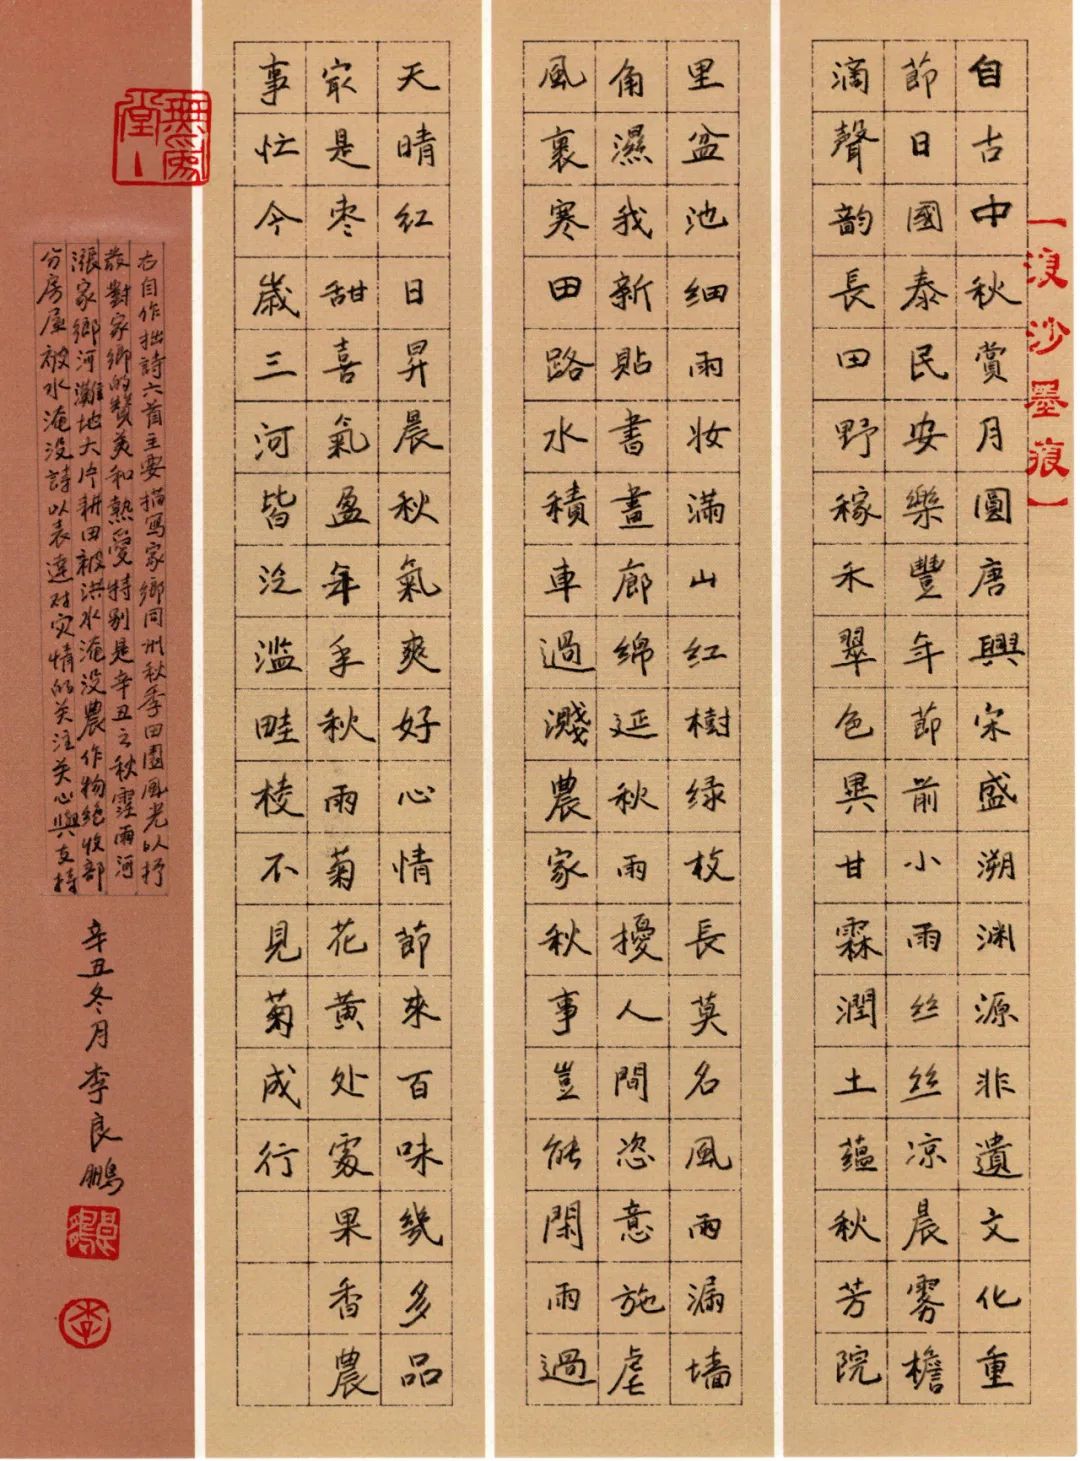 【浪沙墨痕】
自古中秋賞月圓唐興宋盛溯渊源非遺文化重
節日國泰民安樂豐年節前小雨丝丝凉晨雾檐
滴聲韵長田野稼禾翠色異甘霖潤土蘊秋芳院
里盆池细雨妆滿山红樹绿枝長莫名風雨漏墙
角濕我新貼書畫廊绵延秋雨擾人間恣意施虐
風裹寒田路水積車過濺農家秋事豈能閑雨過
天晴红日昇晨秋氣爽好心情節來百味幾多品
最是枣甜喜氣盈年季秋雨菊花黄处處果香農
事忙今歲三河皆泛滥畦棱不見菊成行
右自作拙詩六首主要描写家鄉同州秋季田園風光以抒
發對家鄉的贊美和熱爱特别是辛丑之秋霪雨河
漲家鄉河灘地大片耕田被洪水淹没農作物絕收部
分房屋被水淹没詩以表達对灾情的关注关心與支持
辛丑冬月李良鵬